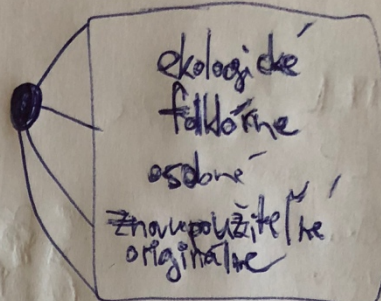 ekologické
folklórne
osobné
znovupoužiteľné
originálne